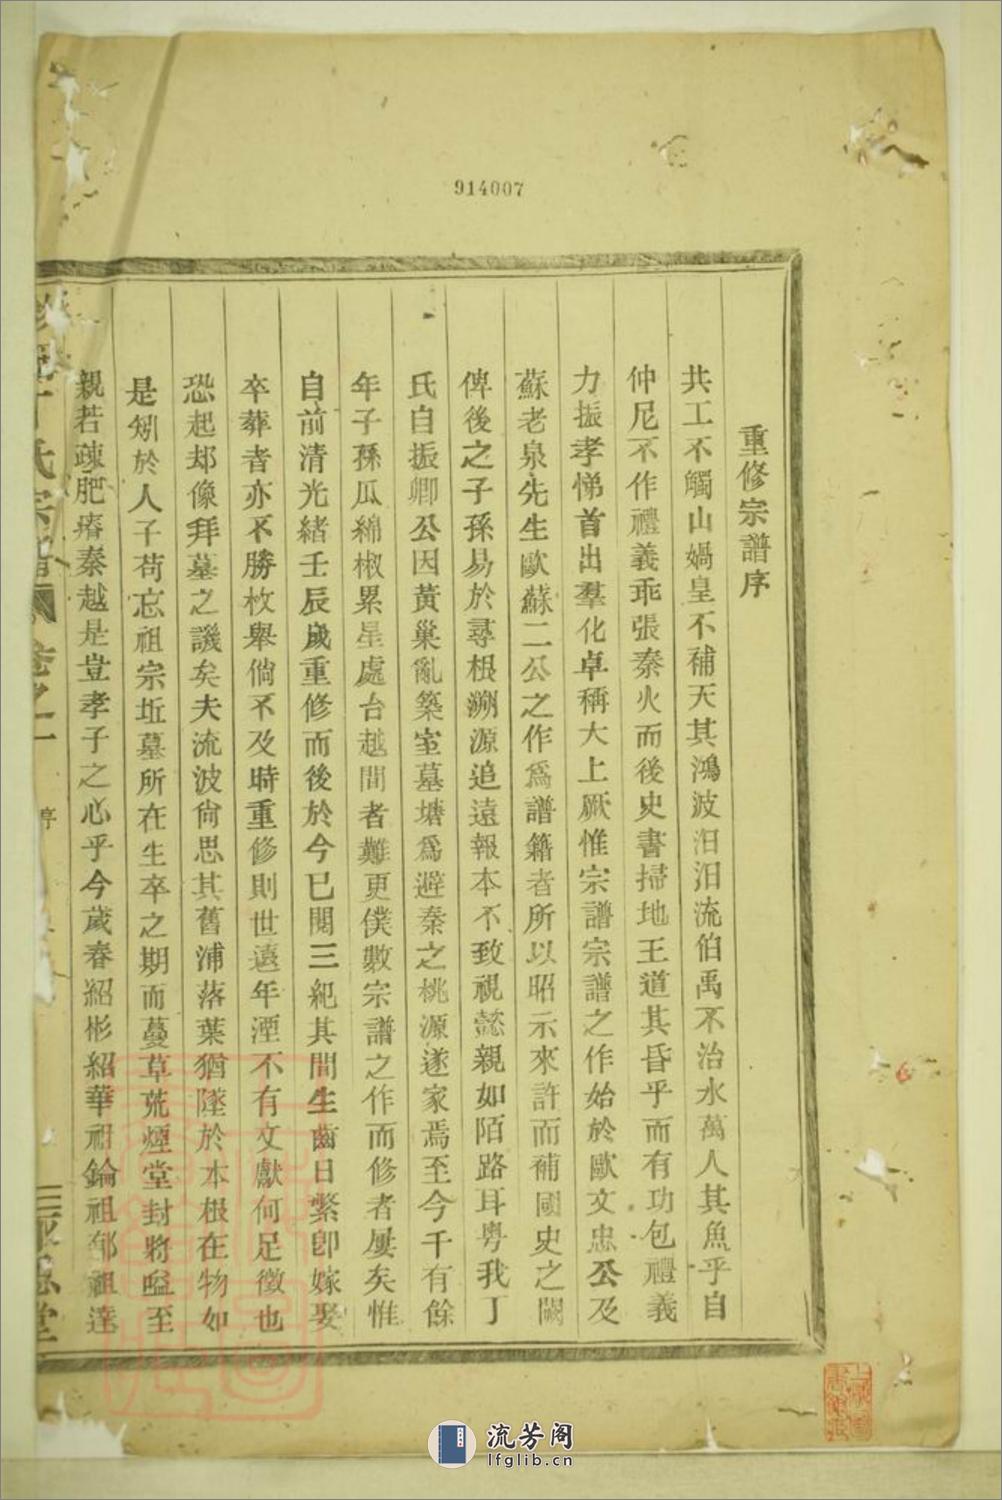 914007
重修宗譜序
共工不觸山媧皇不補天其鴻波汩汩流伯禹不治水萬人其魚乎自
仲尼不作禮義乖張秦火而後史書掃地王道其昏乎而有功包禮義
力振孝悌首出羣化卓稱大上厥惟宗譜宗譜之作始於歐文忠公及
蘇老泉先生歐蘇二公之作爲譜籍者所以昭示來許而補國史之闕
俾後之子孫易於尋根溯源追遠報本不致視懿親如陌路耳粤我丁
氏自振卿公因黃巢亂築室墓塘爲避秦之桃源遂家焉至今千有餘
年子孫瓜綿椒累星處台越間者難更僕數宗譜之作而修者屢矣惟
自前清光緒壬辰歲重修而後於今已閱三紀其間生齒日繁卽嫁娶
卒葬者亦不勝枚舉倘不及時重修則世遠年湮不有文獻何足徵也
恐起邞像拜墓之譏矣夫流波尙思其舊浦落葉猶墜於本根在物如
是矧於人子苟忘祖宗坵墓所在生卒之期而蔓草荒煙堂封將嗌至
親若疎肥瘠秦越是豈孝子之心乎今歲春紹彬紹華祖錀祖郁祖達
丁氏宗譜 卷之一 序
流芳阁
lfglib.cn